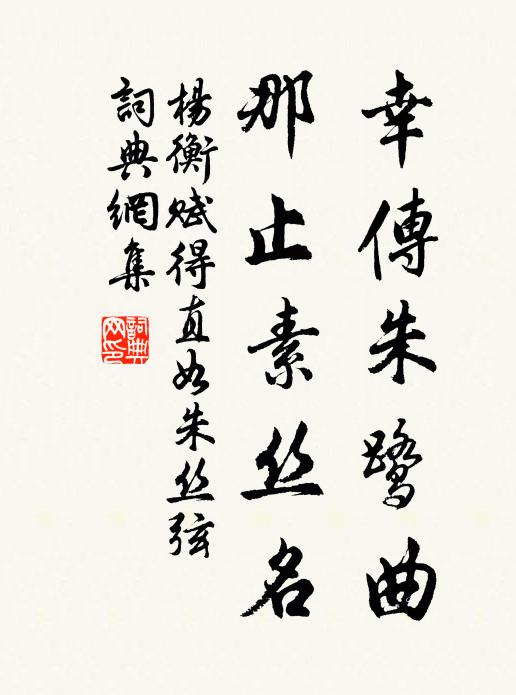 幸傳朱鷺曲
那止素丝名
楊衡赋得直如朱丝弦
詞典網集
詞典網印